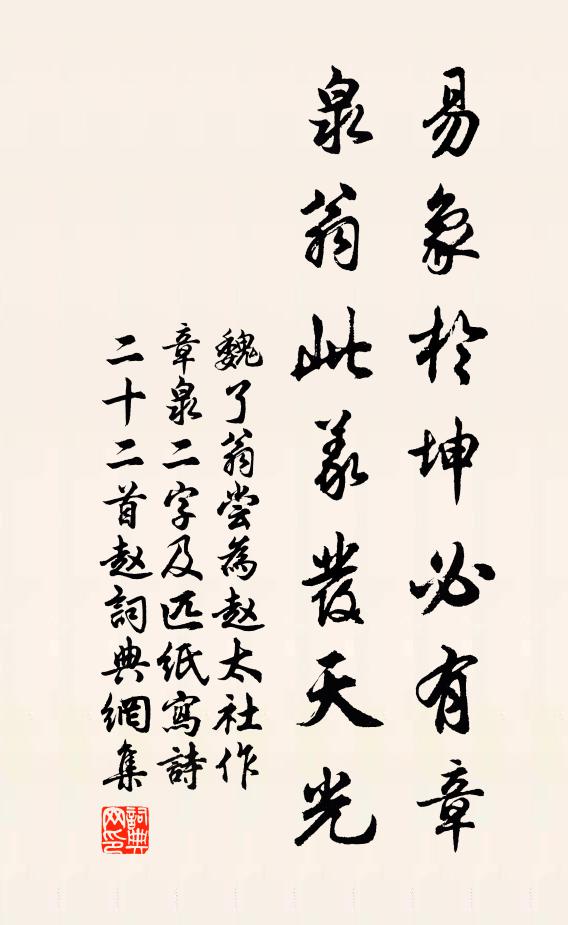 易象於坤必有章
泉翁此義發天光
魏了翁嘗為趙太社作
章泉二字及匹紙寫詩
二十二首趙詞典網集
詞典網印